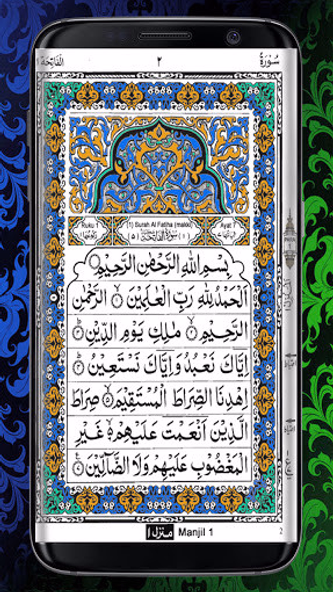 سُوْرَةُ ٢ اَلْفَاتِحَة ١
Ruku 1 (1) Surah Al Fatiha (makki) Ayat 7
بِسْمِ اللّٰهِ الرَّحْمٰنِ الرَّحِيْمِ
اَلْحَمْدُ لِلّٰهِ رَبِّ الْعٰلَمِيْنَ ۙ الرَّحْمٰنِ
الرَّحِيْمِ ۙ مٰلِكِ يَوْمِ الدِّيْنِ ؕ
اِيَّاكَ نَعْبُدُ وَاِيَّاكَ نَسْتَعِيْنُ ؕ
اِهْدِنَا الصِّرَاطَ الْمُسْتَقِيْمَ ۙ صِرَاطَ
الَّذِيْنَ اَنْعَمْتَ عَلَيْهِمْ ۙ غَيْرِ
الْمَغْضُوْبِ عَلَيْهِمْ وَلَا الضَّآلِّيْنَ
منزل ١ Manjil 1 2